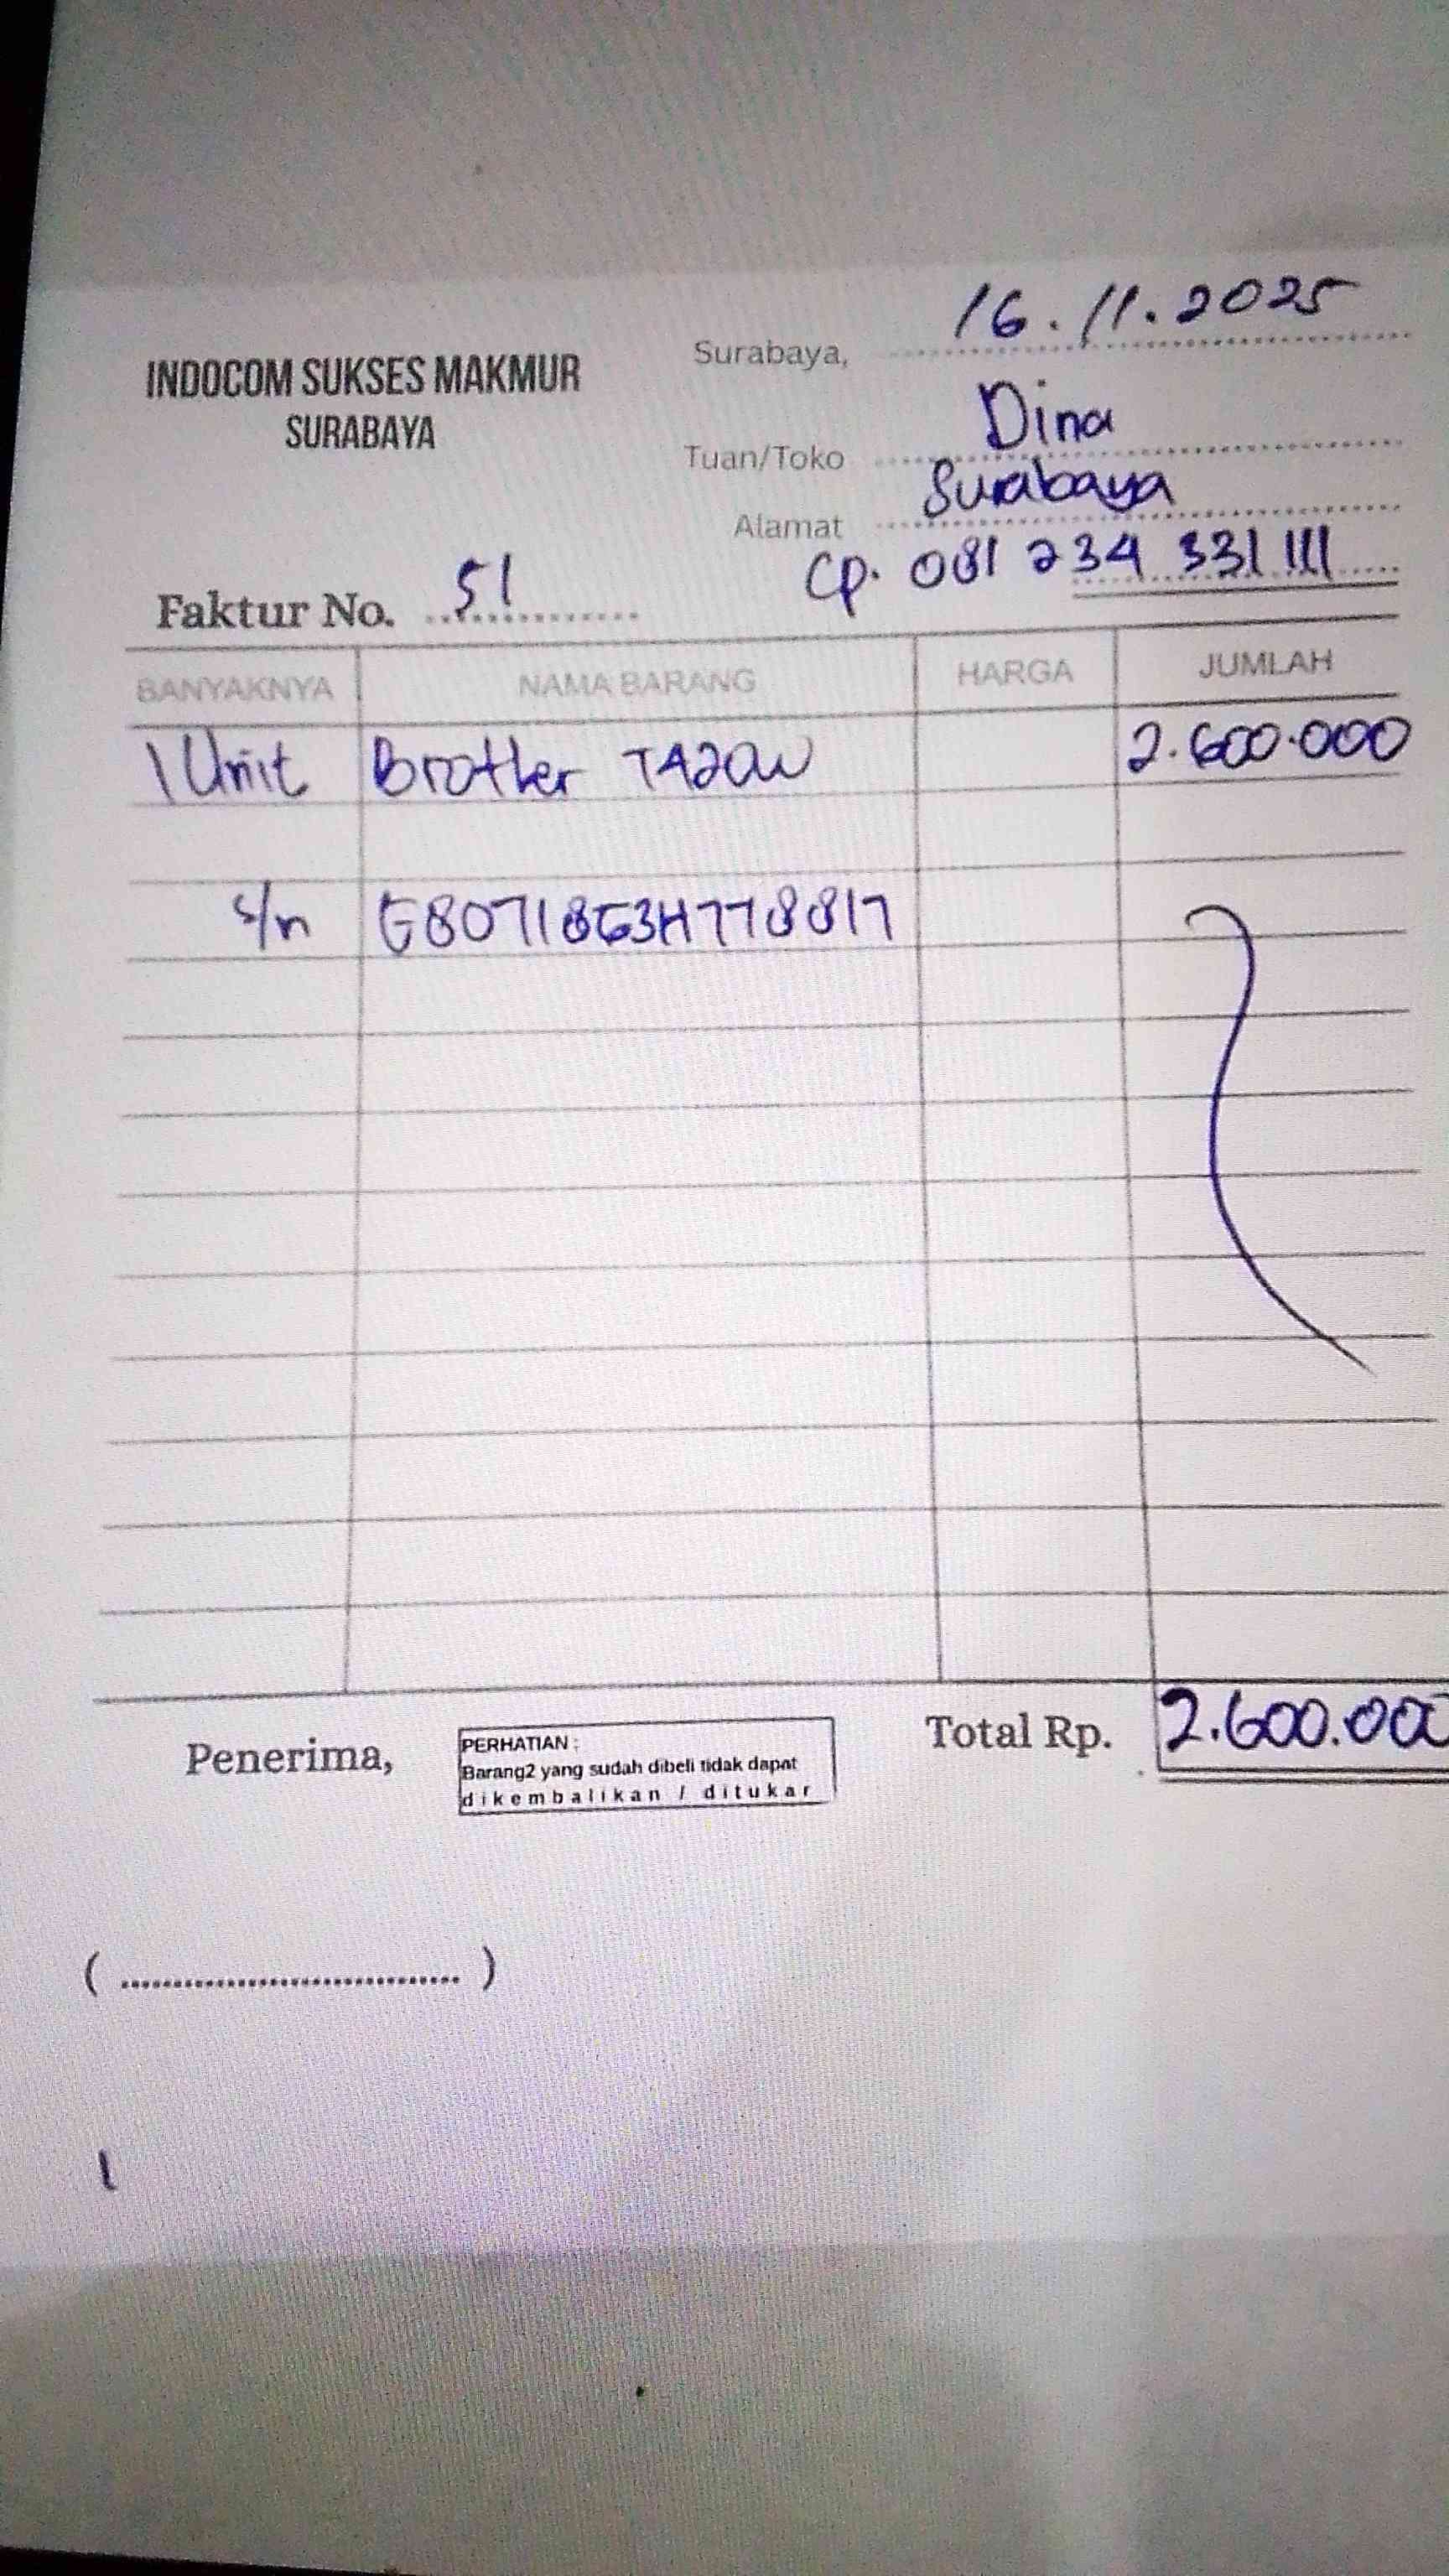 INDOCOM SUKSES MAKMUR
SURABAYA
Surabaya, 16.11.2025
Tuan/Toko Dina
Alamat Surabaya
Cp. 081 234 331 111
Faktur No. 51
BANYAKNYA NAMA BARANG HARGA JUMLAH
1 Unit Brother T420W 2.600.000
s/n E80718G3H778817
Penerima,
PERHATIAN :
Barang2 yang sudah dibeli tidak dapat
dikembalikan / ditukar
Total Rp. 2.600.000
( .................................. )